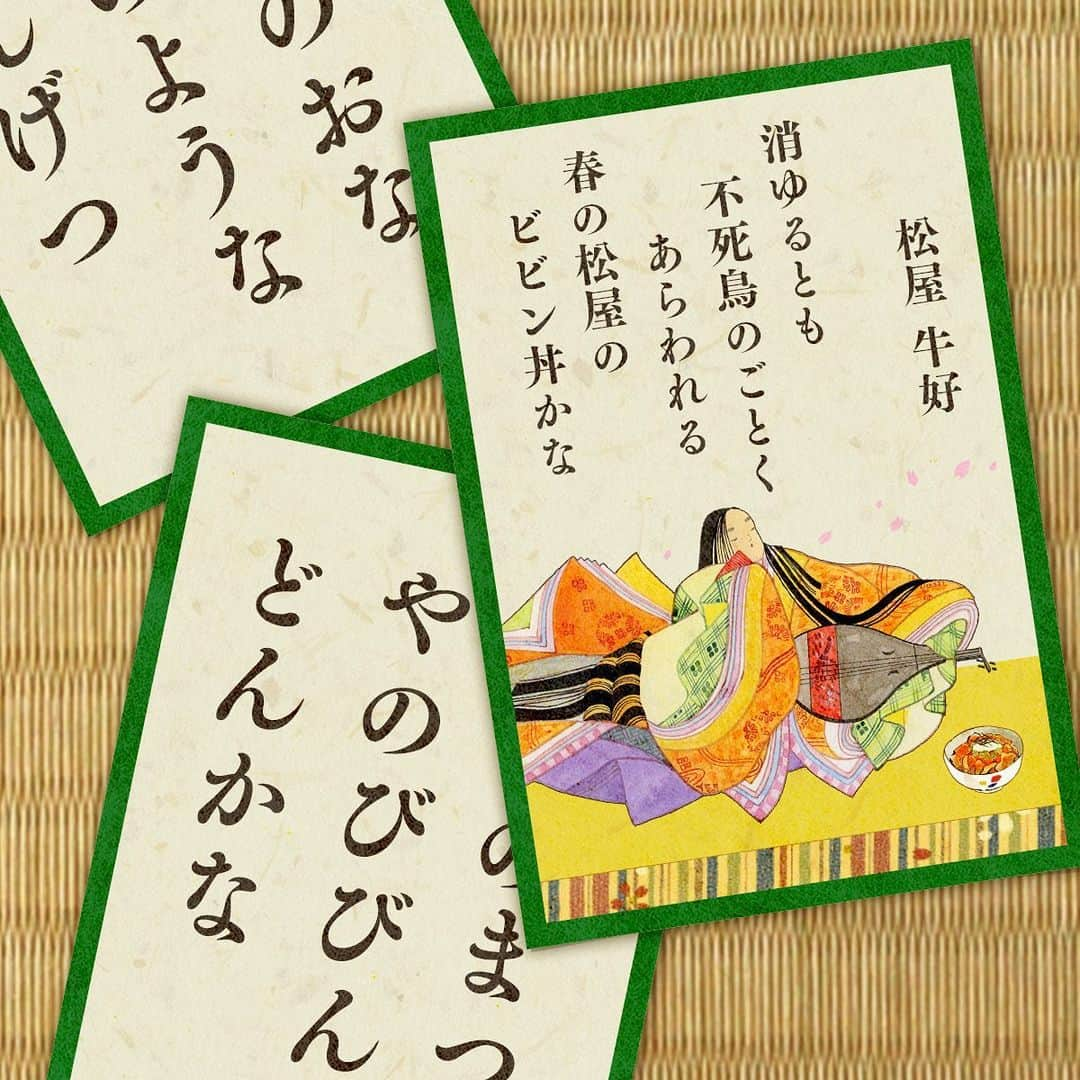 松屋 牛好
消ゆるとも
不死鳥のごとく
あらわれる
春の松屋の
ビビン丼かな
のおな
のような
んげつ
のまつ
やのびびん
どんかな